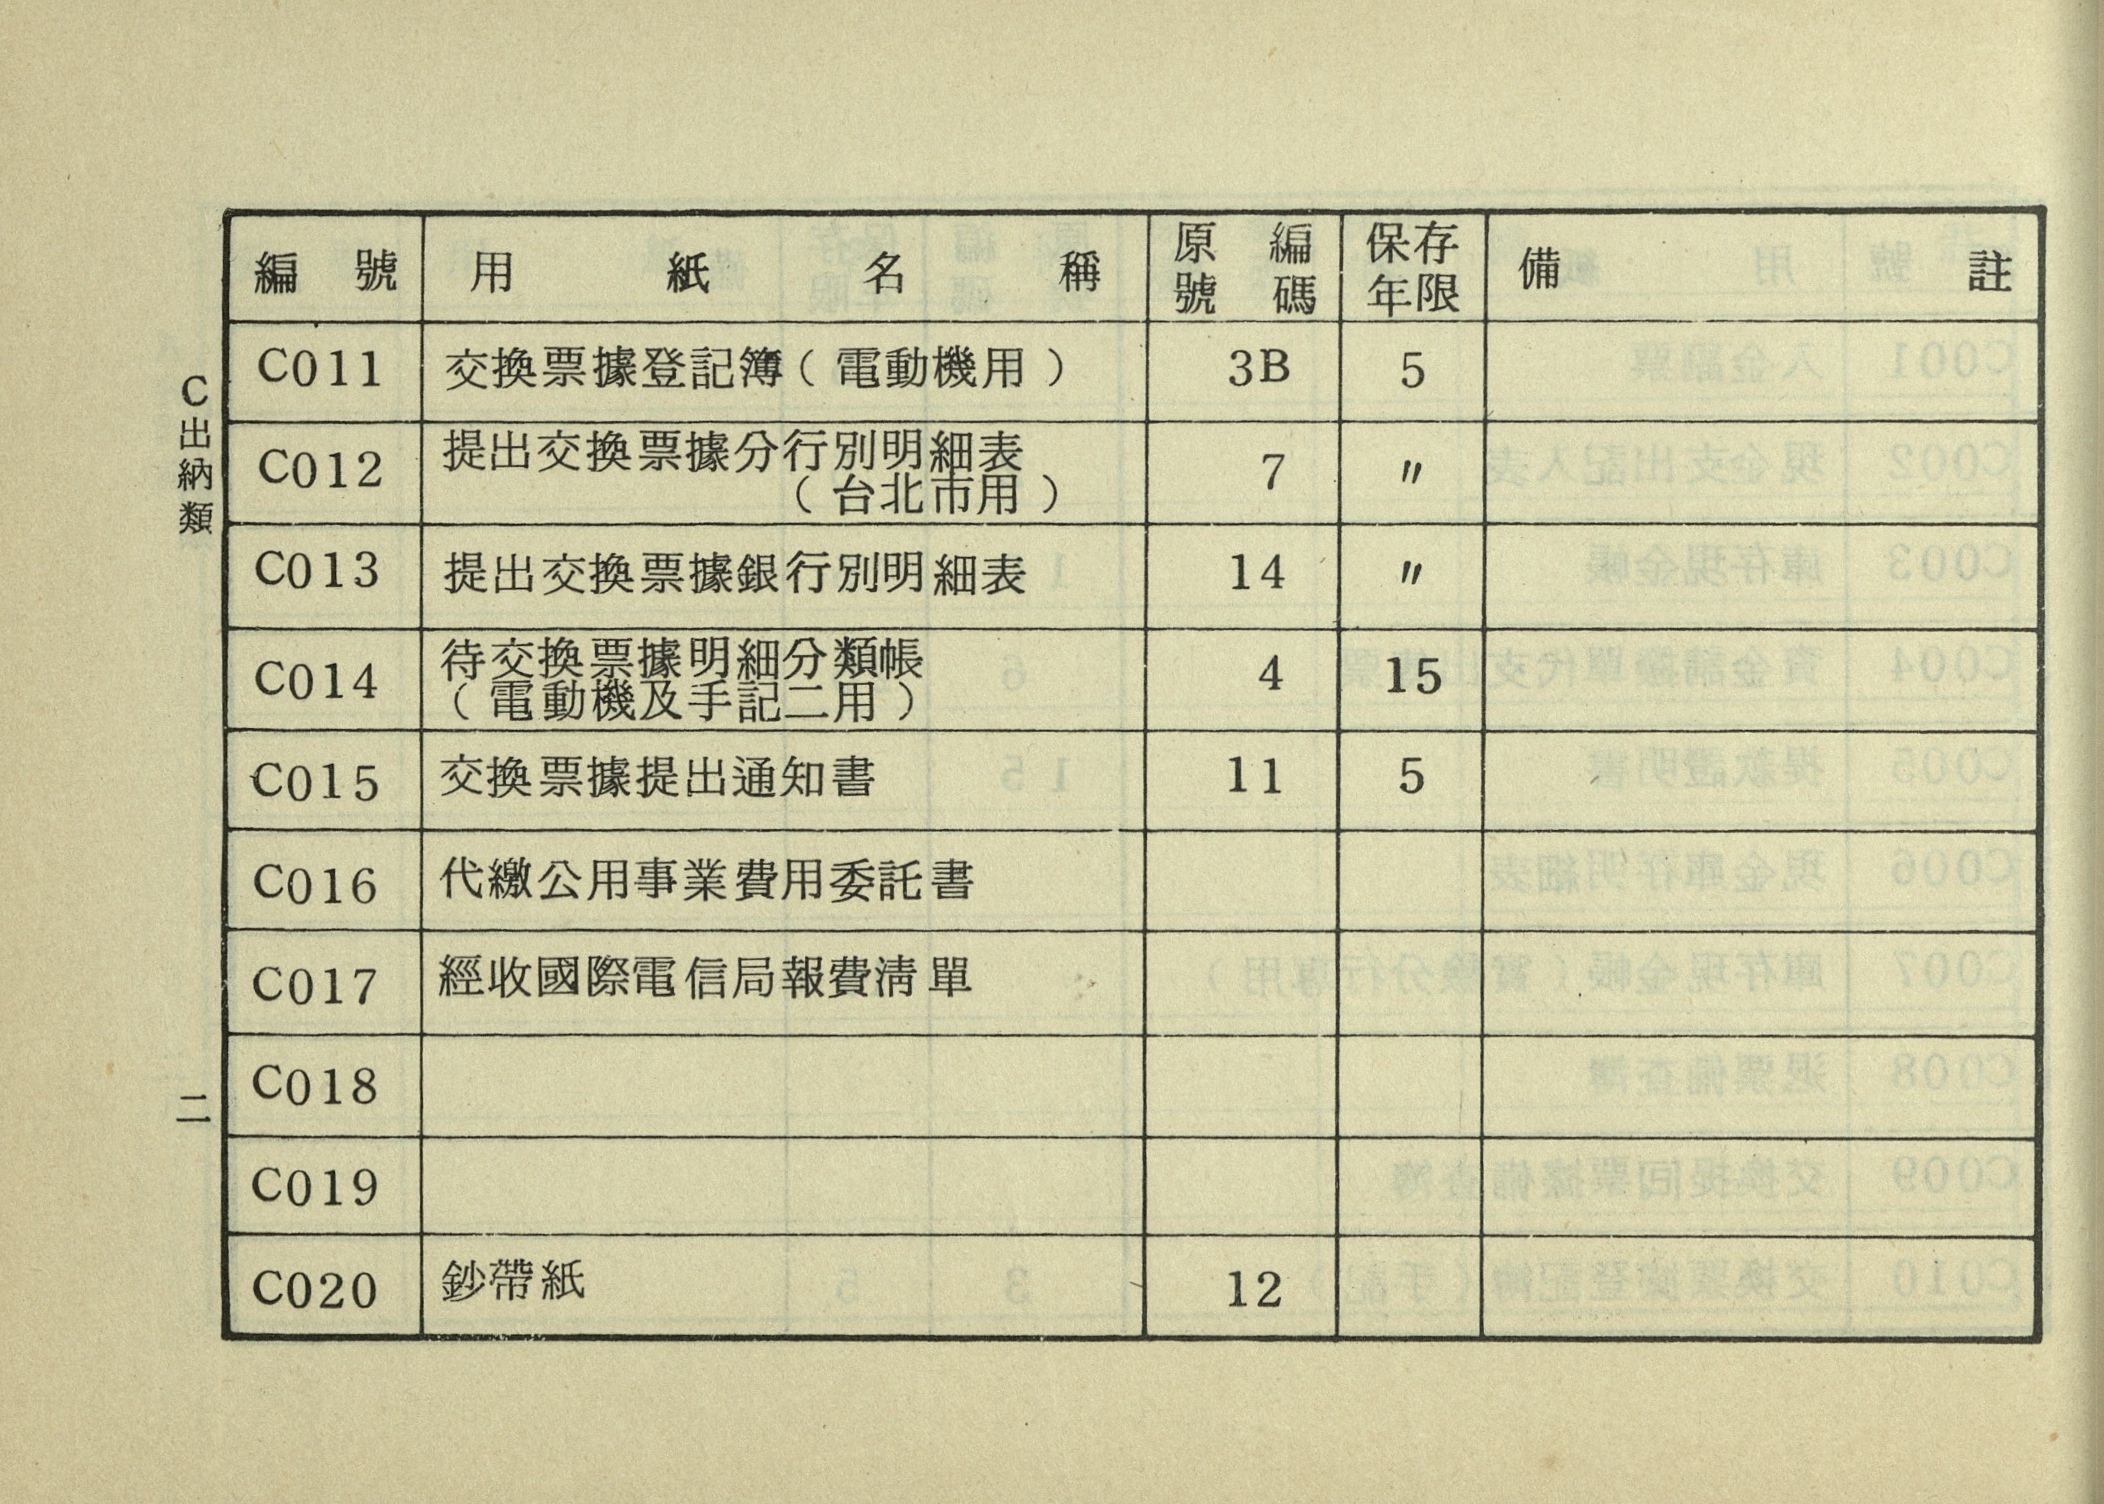 C出納類
編號 用紙名稱 原編號碼 保存年限 備註
C011 交換票據登記簿（電動機用） 3B 5
C012 提出交換票據分行別明細表 7 〃
（台北市用）
C013 提出交換票據銀行別明細表 14 〃
C014 待交換票據明細分類帳 4 15
（電動機及手記二用）
C015 交換票據提出通知書 11 5
C016 代繳公用事業費用委託書
C017 經收國際電信局報費清單
C018
C019
C020 鈔帶紙 12
二